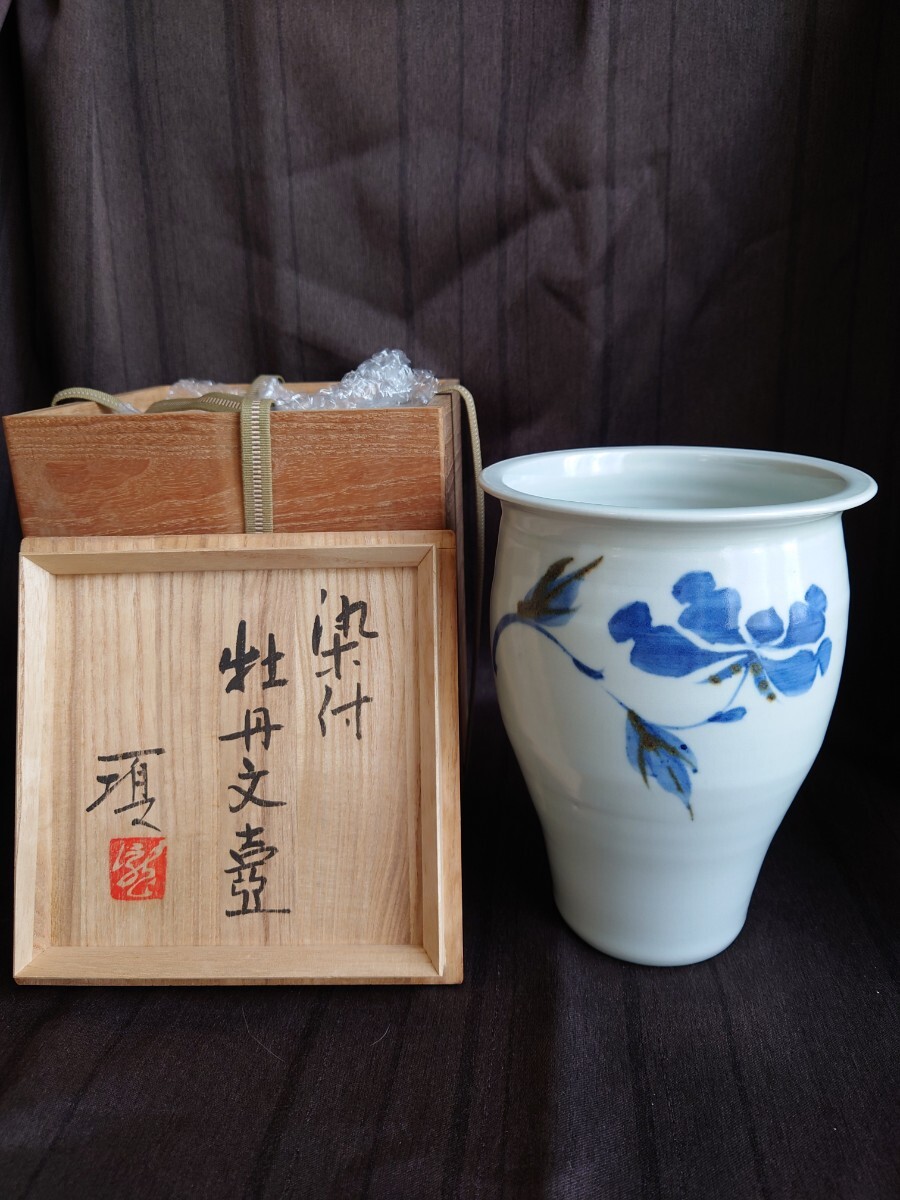 染付
牡丹文壷
項